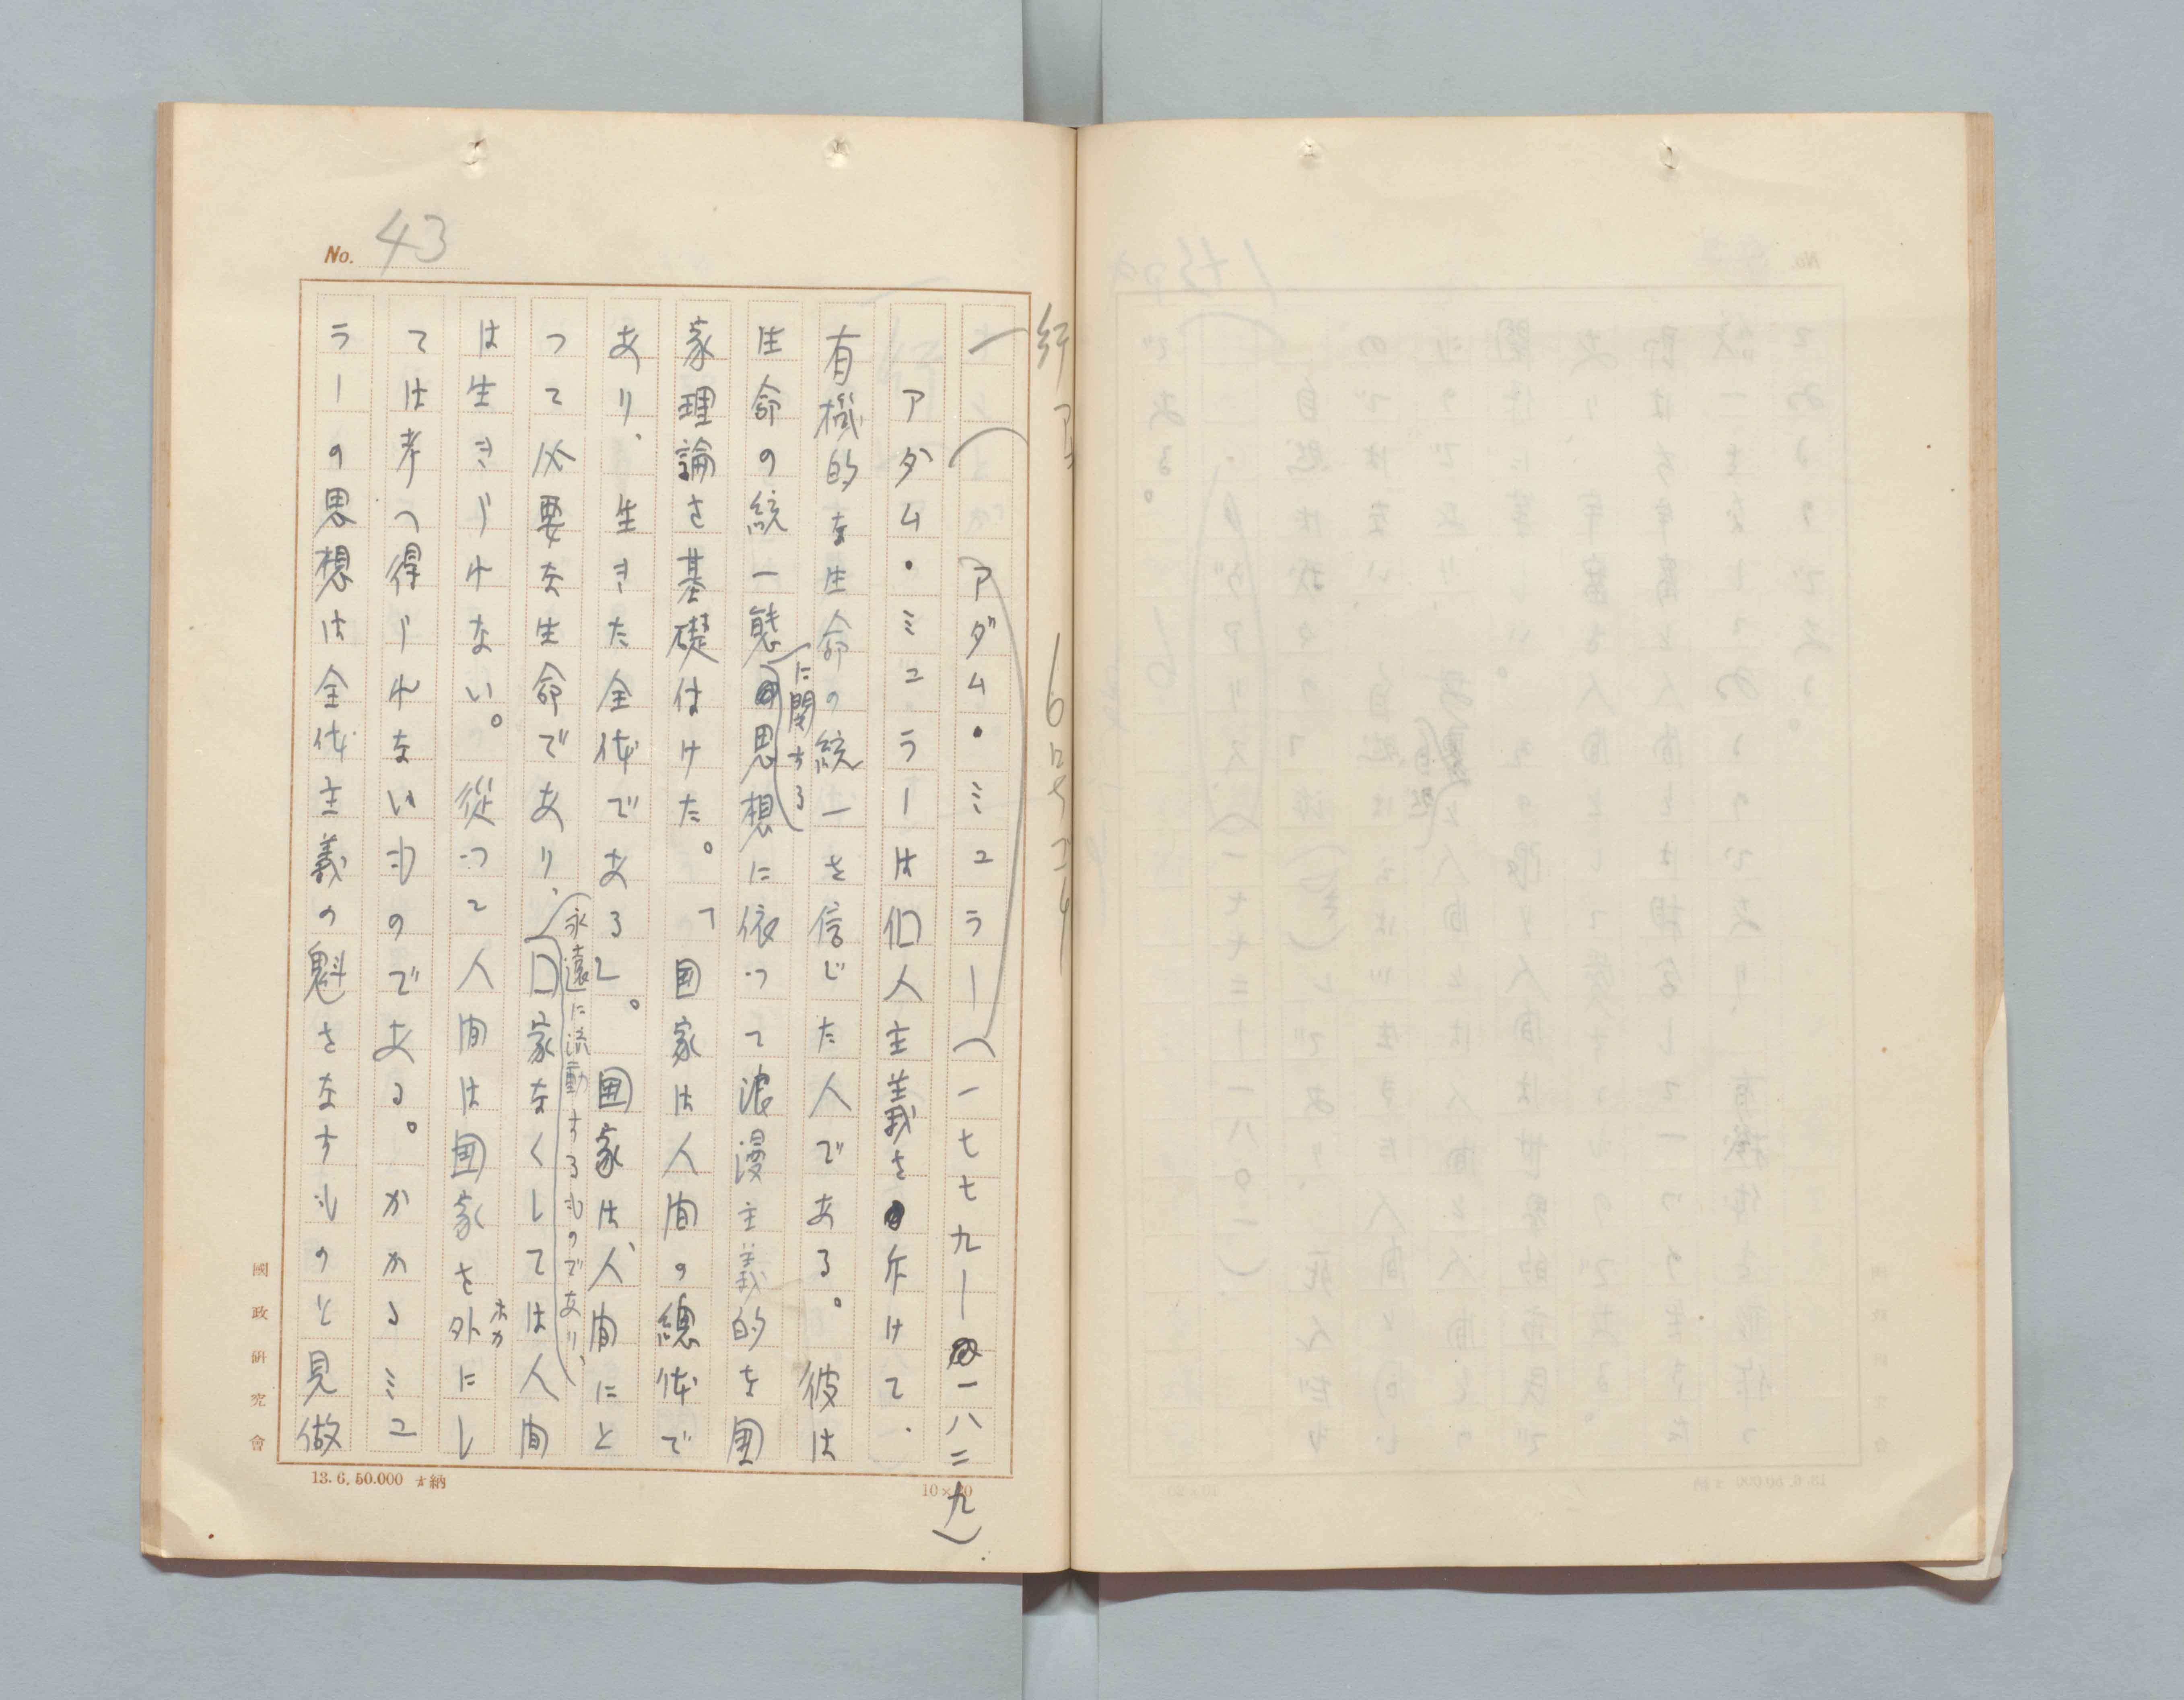 No. 43
一行アキ
6号ゴチ
アダム・ミユラー(一七七九—一八二九)
アダム・ミユラーは個人主義を斥けて、
有機的な生命の統一を信じた人である。彼は
生命の統一態に関する思想に依つて浪漫主義的な国
家理論を基礎付けた。「国家は人間の總体で
あり、生きた全体である」。国家は、人間にと
つて必要な生命であり、永遠に流動するものであり、国家なくしては人間
は生きられない。從つて人間は国家を外にし
ホカ
ては考へ得られないものである。かかるミユ
ラーの思想は全体主義の魁をなすものと見做
國政研究會
13.6.50.000 才納
10×20